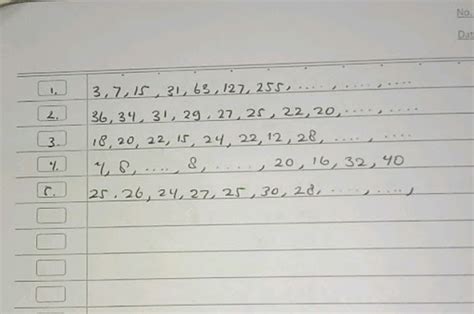 No.
Dat
1. 3, 7, 15, 31, 63, 127, 255, ...., ...., ....
2. 36, 34, 31, 29, 27, 25, 22, 20, ...., ....
3. 18, 20, 22, 15, 24, 22, 12, 28, ...., ....
4. 4, 8, ...., 8, ...., 20, 16, 32, 40
5. 25. 26, 24, 27, 25, 30, 28, ...., ....,